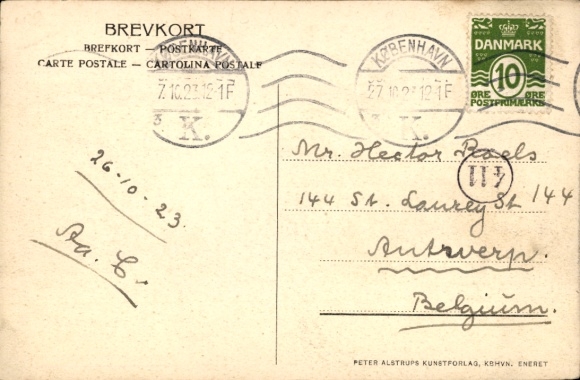 BREVKORT
BREFKORT — POSTKARTE
CARTE POSTALE — CARTOLINA POSTALE
KØBENHAVN
7.10.23.12-1F
3 K.
KØBENHAVN
27.10.23.12-1F
K.
DANMARK
10
ØRE ØRE
POSTFRIMÆRKE
26-10-23
Aa. C.
Mr. Hector Roels
411
144 St. Laurey St 144
Antwerp.
Belgium.
PETER ALSTRUPS KUNSTFORLAG, KBHVN. ENERET